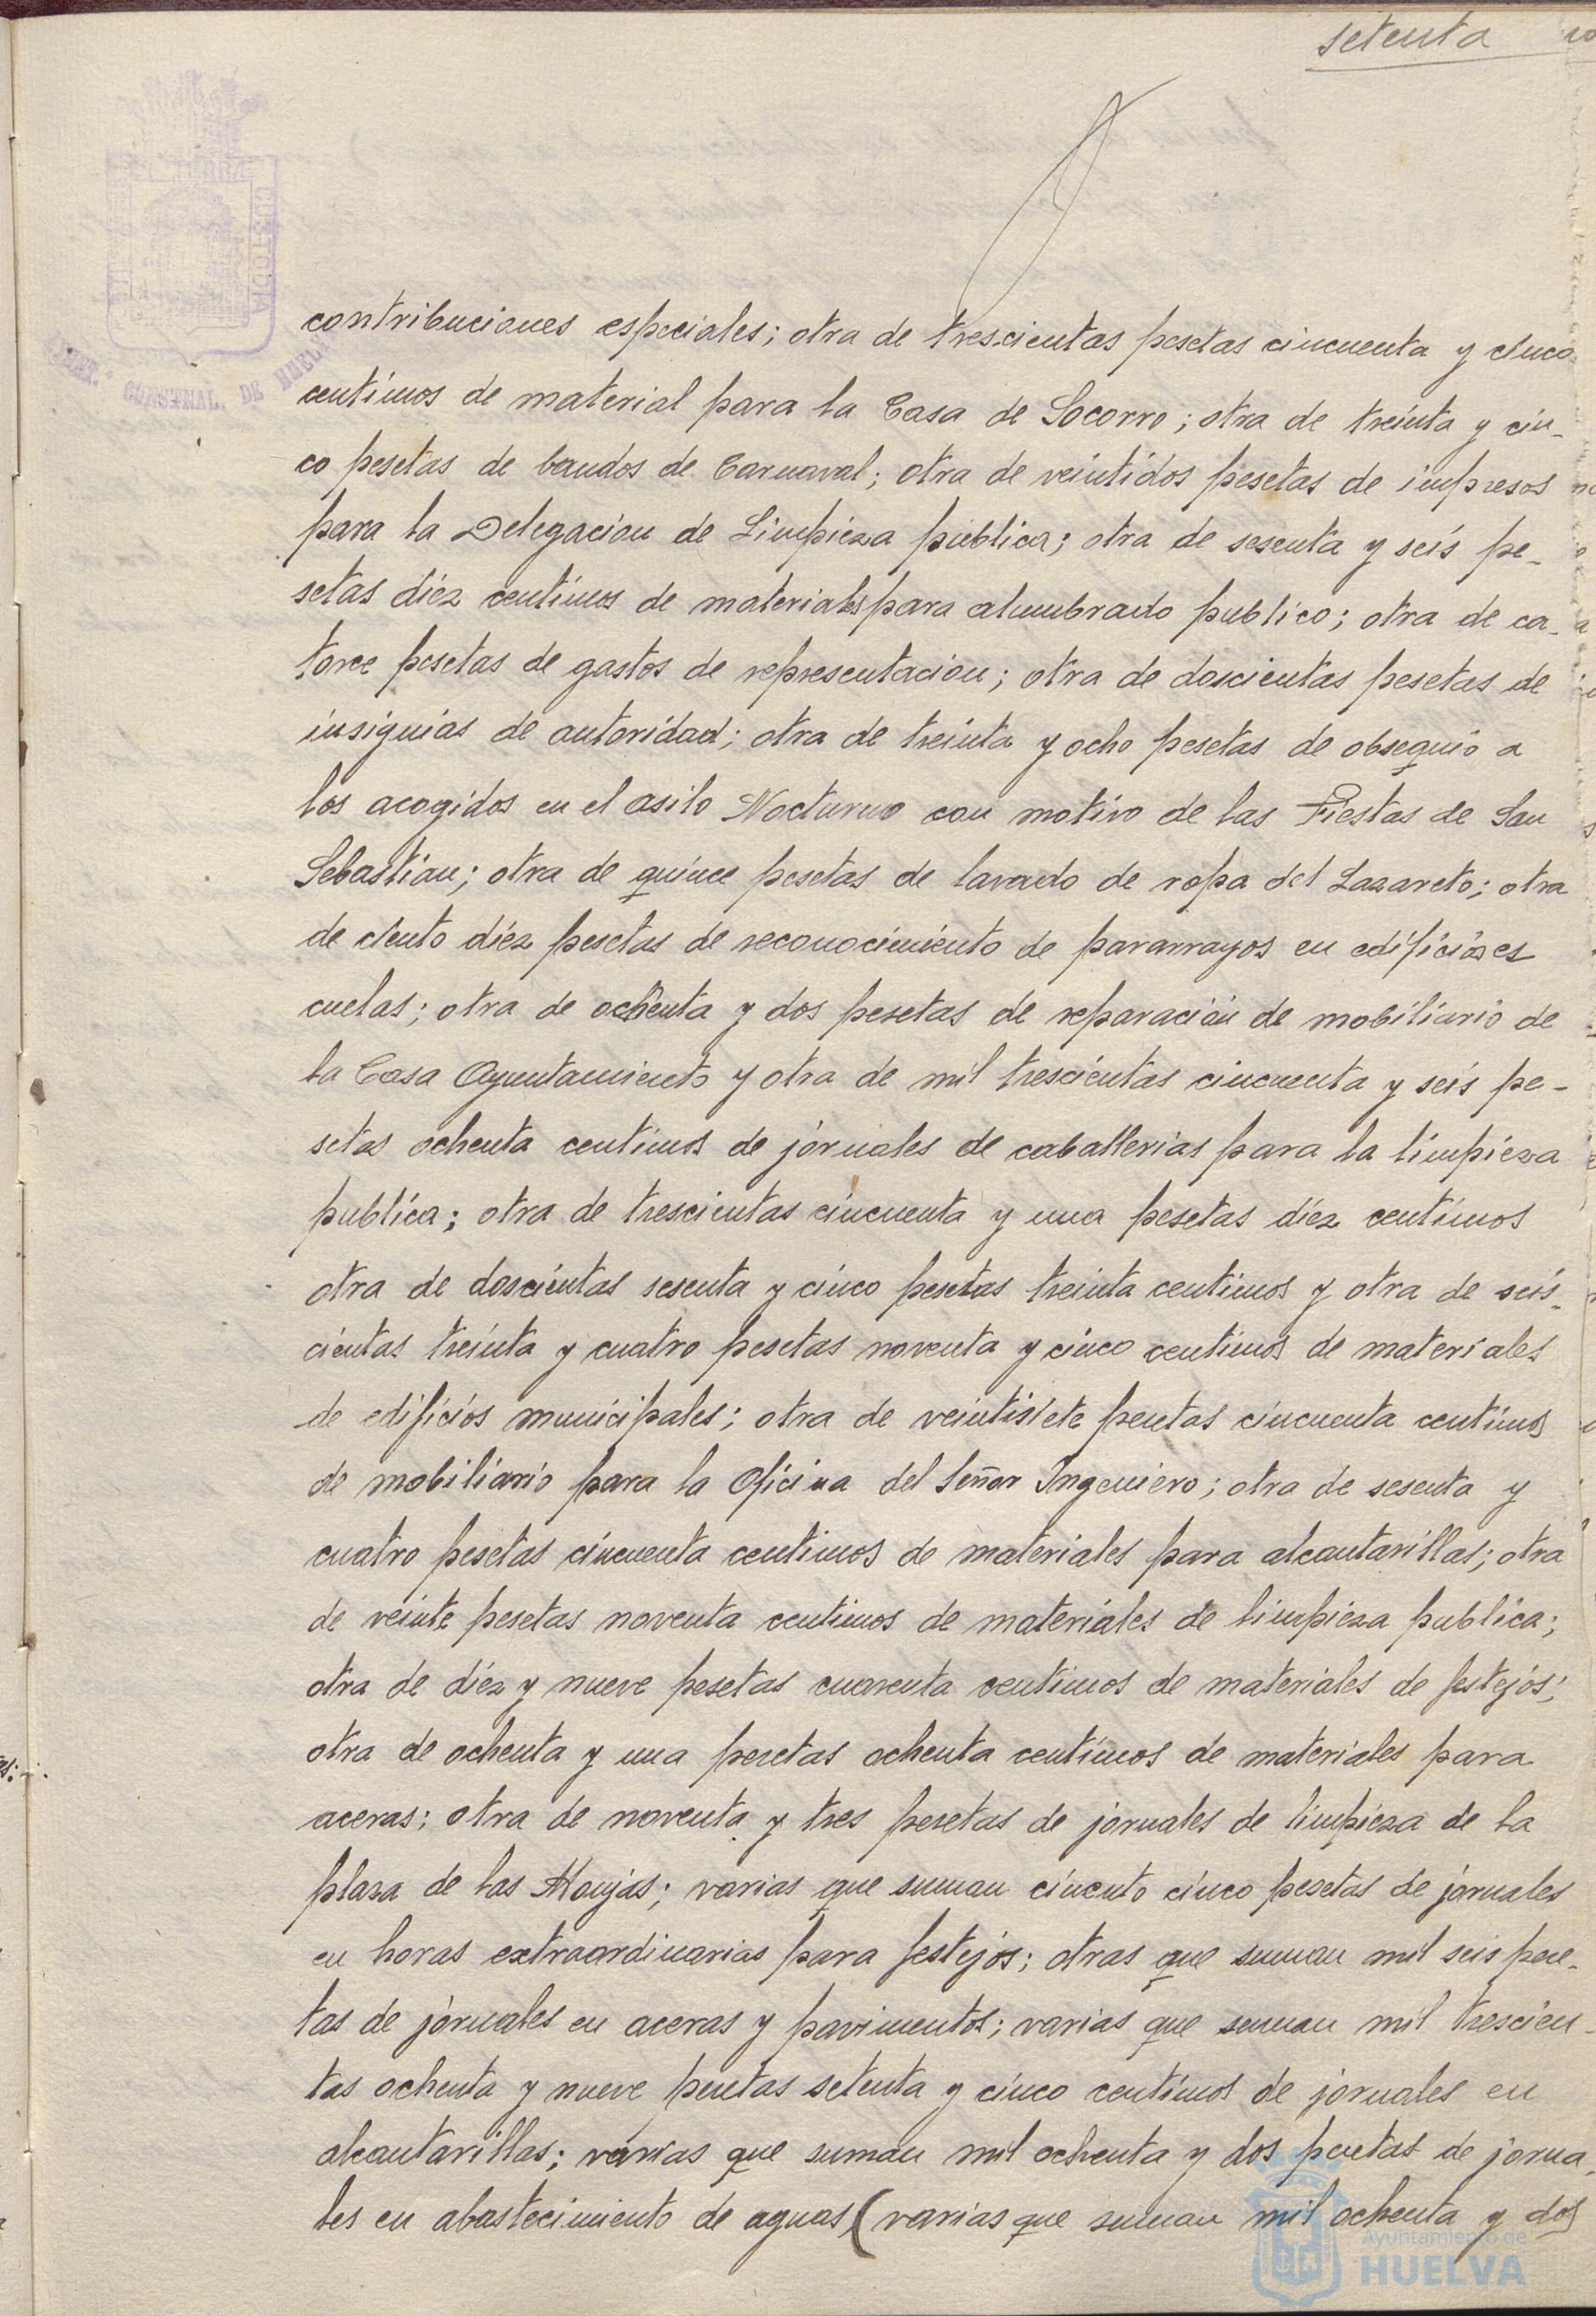 setenta
CUSTODIA
CONSTNAL. DE HUELVA
contribuciones especiales; otra de trescientas pesetas cincuenta y cinco
centimos de material para la Casa de Socorro; otra de treinta y cin-
co pesetas de bandos de Carnaval; otra de veintidos pesetas de impresos
para la Delegacion de Limpieza pública; otra de sesenta y seis pe-
setas diez centimos de materiales para alumbrado publico; otra de ca-
torce pesetas de gastos de representacion; otra de doscientas pesetas de
insignias de autoridad; otra de treinta y ocho pesetas de obsequio a
los acogidos en el asilo Nocturno con motivo de las Fiestas de San
Sebastian; otra de quince pesetas de lavado de ropa del Lazareto; otra
de ciento diez pesetas de reconocimiento de pararrayos en edificios es
cuelas; otra de ochenta y dos pesetas de reparación de mobiliario de
la Casa Ayuntamiento y otra de mil trescientas cincuenta y seis pe-
setas ochenta centimos de jornales de caballerias para la limpieza
publica; otra de trescientas cincuenta y una pesetas diez centimos
otra de doscientas sesenta y cinco pesetas treinta centimos y otra de seis-
cientas treinta y cuatro pesetas noventa y cinco centimos de materiales
de edificios municipales; otra de veintisiete pesetas cincuenta centimos
de mobiliario para la Oficina del Señor Ingeniero; otra de sesenta y
cuatro pesetas cincuenta centimos de materiales para alcantarillas; otra
de veinte pesetas noventa centimos de materiales de limpieza publica;
otra de diez y nueve pesetas cuarenta centimos de materiales de festejos;
otra de ochenta y una pesetas ochenta centimos de materiales para
aceras; otra de noventa y tres pesetas de jornales de limpieza de la
plaza de las Monjas; varias que suman ciento cinco pesetas de jornales
en horas extraordinarias para festejos; otras que suman mil seis pese-
tas de jornales en aceras y pavimentos; varias que suman mil trescien-
tas ochenta y nueve pesetas setenta y cinco centimos de jornales en
alcantarillas; varias que suman mil ochenta y dos pesetas de jorna
les en abastecimiento de aguas (varias que suman mil ochenta y dos
Ayuntamiento de
HUELVA